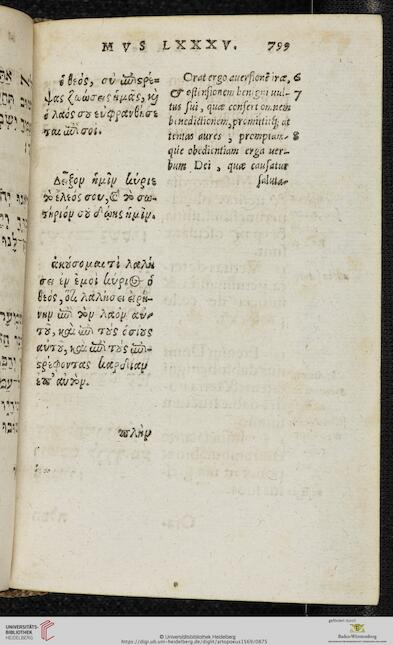 MVS LXXXV. 799
ὁ θεὸς, σὺ ἐπιστρέ-
ψας ζωώσεις ἡμᾶς, καὶ
ὁ λαός σου εὐφρανθήσε
ται ἐπὶ σοί.
Δεῖξον ἡμῖν κύριε
τὸ ἔλεός σου, καὶ τὸ σω-
τήριόν σου δῴης ἡμῖν.
ἀκούσομαι τί λαλή
σει ἐν ἐμοὶ κύριος ὁ
θεὸς, ὅτι λαλήσει εἰρή-
νην ἐπὶ τὸν λαὸν αὐ-
τοῦ, καὶ ἐπὶ τοὺς ὁσίους
αὐτοῦ, καὶ ἐπὶ τοὺς ἐπι-
στρέφοντας καρδίαν
ἐπ' αὐτόν.
πλὴν
Orat ergo auersionē iræ, 6
& ostensionem benigni uul- 7
tus sui, quæ confert omnem
benedictionem, promittitq; at
tentas aures, promptam- 8
que obedientiam erga uer-
bum Dei, quæ causatur
salute-
UNIVERSITÄTS-
BIBLIOTHEK
HEIDELBERG
© Universitätsbibliothek Heidelberg
https://digi.ub.uni-heidelberg.de/diglit/artopoeus1569/0875
gefördert durch
Baden-Württemberg